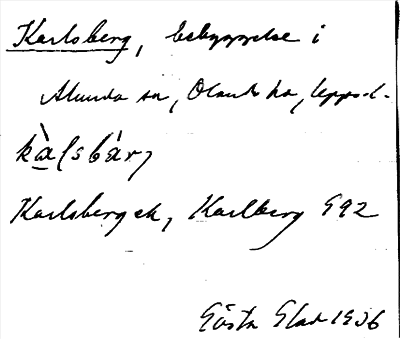 Karlsberg, bebyggelse i
Alunda sn, Olands hd, Uppsal-
kàlsbàr,
Karlsberg ek, Karlberg G92
Gösta Glad 1936